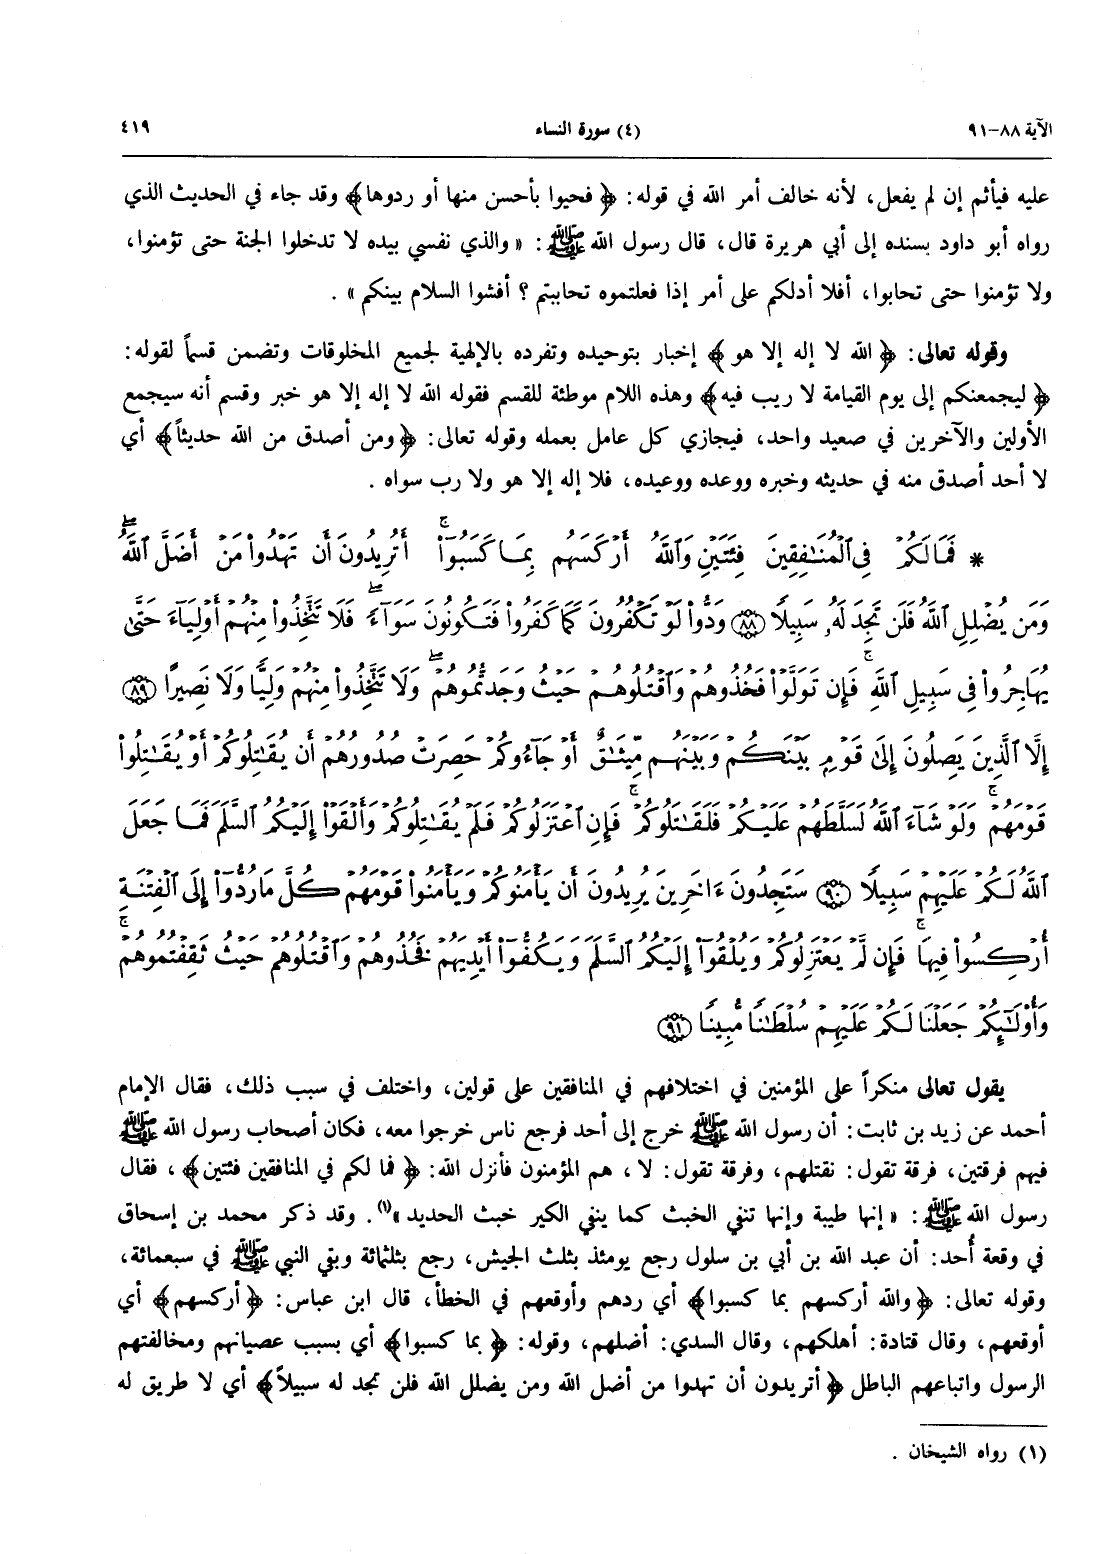 الآية ٨٨-٩١
(٤) سورة النساء
٤١٩
عليه فيأثم إن لم يفعل، لأنه خالف أمر الله في قوله: ﴿ فحيوا بأحسن منها أو ردوها﴾ وقد جاء في الحديث الذي
رواه أبو داود بسنده إلى أبي هريرة قال، قال رسول الله ﷺ: « والذي نفسي بيده لا تدخلوا الجنة حتى تؤمنوا،
ولا تؤمنوا حتى تحابوا، أفلا أدلكم على أمر إذا فعلتموه تحاببتم ؟ أفشوا السلام بينكم » .
وقوله تعالى: ﴿ الله لا إله إلا هو ﴾ إخبار بتوحيده وتفرده بالإلهية لجميع المخلوقات وتضمن قسماً لقوله:
﴿ ليجمعنكم إلى يوم القيامة لا ريب فيه﴾ وهذه اللام موطئة للقسم فقوله الله لا إله إلا هو خبر وقسم أنه سيجمع
الأولين والآخرين في صعيد واحد، فيجازي كل عامل بعمله وقوله تعالى: ﴿ومن أصدق من الله حديثاً﴾ أي
لا أحد أصدق منه في حديثه وخبره ووعده ووعيده، فلا إله إلا هو ولا رب سواه .
* فَمَا لَكُمْ فِى ٱلْمُنَـٰفِقِينَ فِئَتَيْنِ وَٱللَّهُ أَرْكَسَهُم بِمَا كَسَبُوٓا۟ ۚ أَتُرِيدُونَ أَن تَهْدُوا۟ مَنْ أَضَلَّ ٱللَّهُ ۖ
وَمَن يُضْلِلِ ٱللَّهُ فَلَن تَجِدَ لَهُۥ سَبِيلًا ﴿٨٨﴾ وَدُّوا۟ لَوْ تَكْفُرُونَ كَمَا كَفَرُوا۟ فَتَكُونُونَ سَوَآءً ۖ فَلَا تَتَّخِذُوا۟ مِنْهُمْ أَوْلِيَآءَ حَتَّىٰ
يُهَاجِرُوا۟ فِى سَبِيلِ ٱللَّهِ ۚ فَإِن تَوَلَّوْا۟ فَخُذُوهُمْ وَٱقْتُلُوهُمْ حَيْثُ وَجَدتُّمُوهُمْ ۖ وَلَا تَتَّخِذُوا۟ مِنْهُمْ وَلِيًّا وَلَا نَصِيرًا ﴿٨٩﴾
إِلَّا ٱلَّذِينَ يَصِلُونَ إِلَىٰ قَوْمٍۭ بَيْنَكُمْ وَبَيْنَهُم مِّيثَـٰقٌ أَوْ جَآءُوكُمْ حَصِرَتْ صُدُورُهُمْ أَن يُقَـٰتِلُوكُمْ أَوْ يُقَـٰتِلُوا۟
قَوْمَهُمْ ۚ وَلَوْ شَآءَ ٱللَّهُ لَسَلَّطَهُمْ عَلَيْكُمْ فَلَقَـٰتَلُوكُمْ ۚ فَإِنِ ٱعْتَزَلُوكُمْ فَلَمْ يُقَـٰتِلُوكُمْ وَأَلْقَوْا۟ إِلَيْكُمُ ٱلسَّلَمَ فَمَا جَعَلَ
ٱللَّهُ لَكُمْ عَلَيْهِمْ سَبِيلًا ﴿٩٠﴾ سَتَجِدُونَ ءَاخَرِينَ يُرِيدُونَ أَن يَأْمَنُوكُمْ وَيَأْمَنُوا۟ قَوْمَهُمْ كُلَّ مَا رُدُّوٓا۟ إِلَى ٱلْفِتْنَةِ
أُرْكِسُوا۟ فِيهَا ۚ فَإِن لَّمْ يَعْتَزِلُوكُمْ وَيُلْقُوٓا۟ إِلَيْكُمُ ٱلسَّلَمَ وَيَكُفُّوٓا۟ أَيْدِيَهُمْ فَخُذُوهُمْ وَٱقْتُلُوهُمْ حَيْثُ ثَقِفْتُمُوهُمْ ۚ
وَأُو۟لَـٰٓئِكُمْ جَعَلْنَا لَكُمْ عَلَيْهِمْ سُلْطَـٰنًا مُّبِينًا ﴿٩١﴾
يقول تعالى منكراً على المؤمنين في اختلافهم في المنافقين على قولين، واختلف في سبب ذلك، فقال الإمام
أحمد عن زيد بن ثابت: أن رسول الله ﷺ خرج إلى أحد فرجع ناس خرجوا معه، فكان أصحاب رسول الله ﷺ
فيهم فرقتين، فرقة تقول: نقتلهم، وفرقة تقول: لا، هم المؤمنون فأنزل الله: ﴿ فما لكم في المنافقين فئتين﴾ ، فقال
رسول الله ﷺ: « إنها طيبة وإنها تنفي الخبث كما ينفي الكير خبث الحديد »(١). وقد ذكر محمد بن إسحاق
في وقعة أُحد: أن عبد الله بن أبي بن سلول رجع يومئذ بثلث الجيش، رجع بثلثمائة وبقي النبي ﷺ في سبعمائة،
وقوله تعالى: ﴿والله أركسهم بما كسبوا﴾ أي ردهم وأوقعهم في الخطأ، قال ابن عباس: ﴿أركسهم﴾ أي
أوقعهم، وقال قتادة: أهلكهم، وقال السدي: أضلهم، وقوله: ﴿ بما كسبوا﴾ أي بسبب عصيانهم ومخالفتهم
الرسول واتباعهم الباطل ﴿ أتريدون أن تهدوا من أضل الله ومن يضلل الله فلن تجد له سبيلاً﴾ أي لا طريق له
(١) رواه الشيخان .